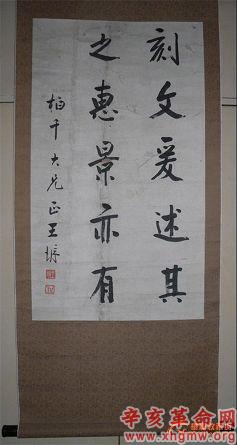 刻文爰述其
之惠景亦有
柏千大兄正王墉
辛亥革命网
www.xhgmw.org